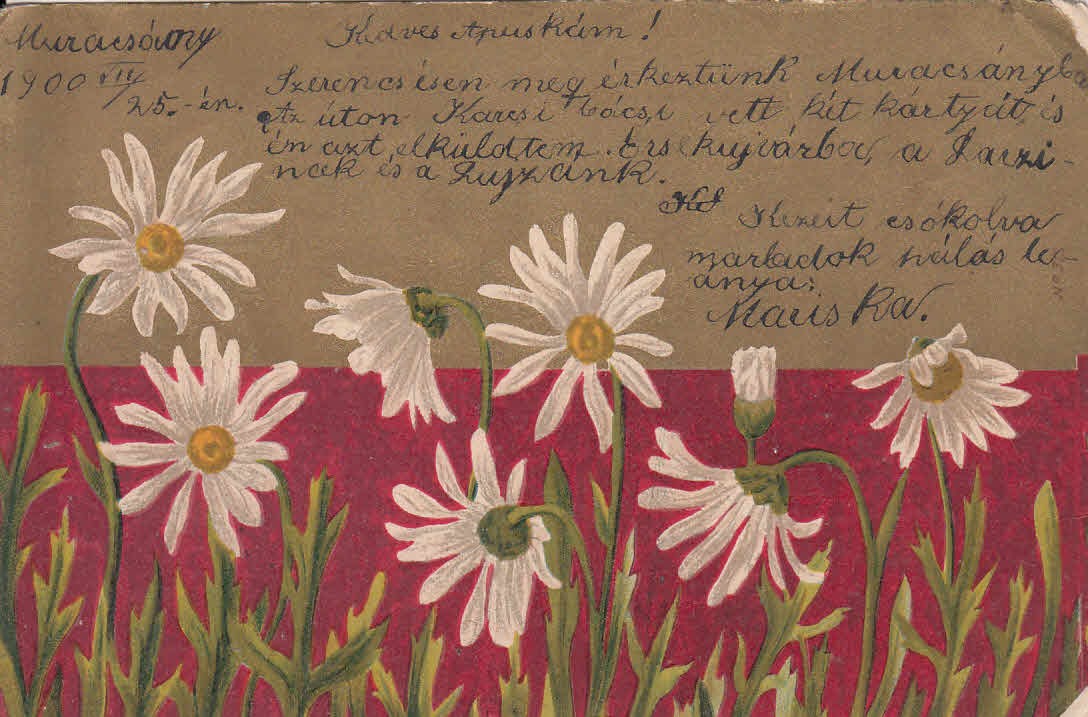 Muracsány
1900 VII/
25.-én.
Kedves Apuskám!
Szerencsésen meg érkeztünk Muracsányba
Az úton Karcsi bácsi vett két kártyát, és
én azt elküldtem. Érsekujvárba, a Laczi-
nak és a Lujzánk.
Kezeit csókolva
maradok hálás le-
ánya:
Mariska.